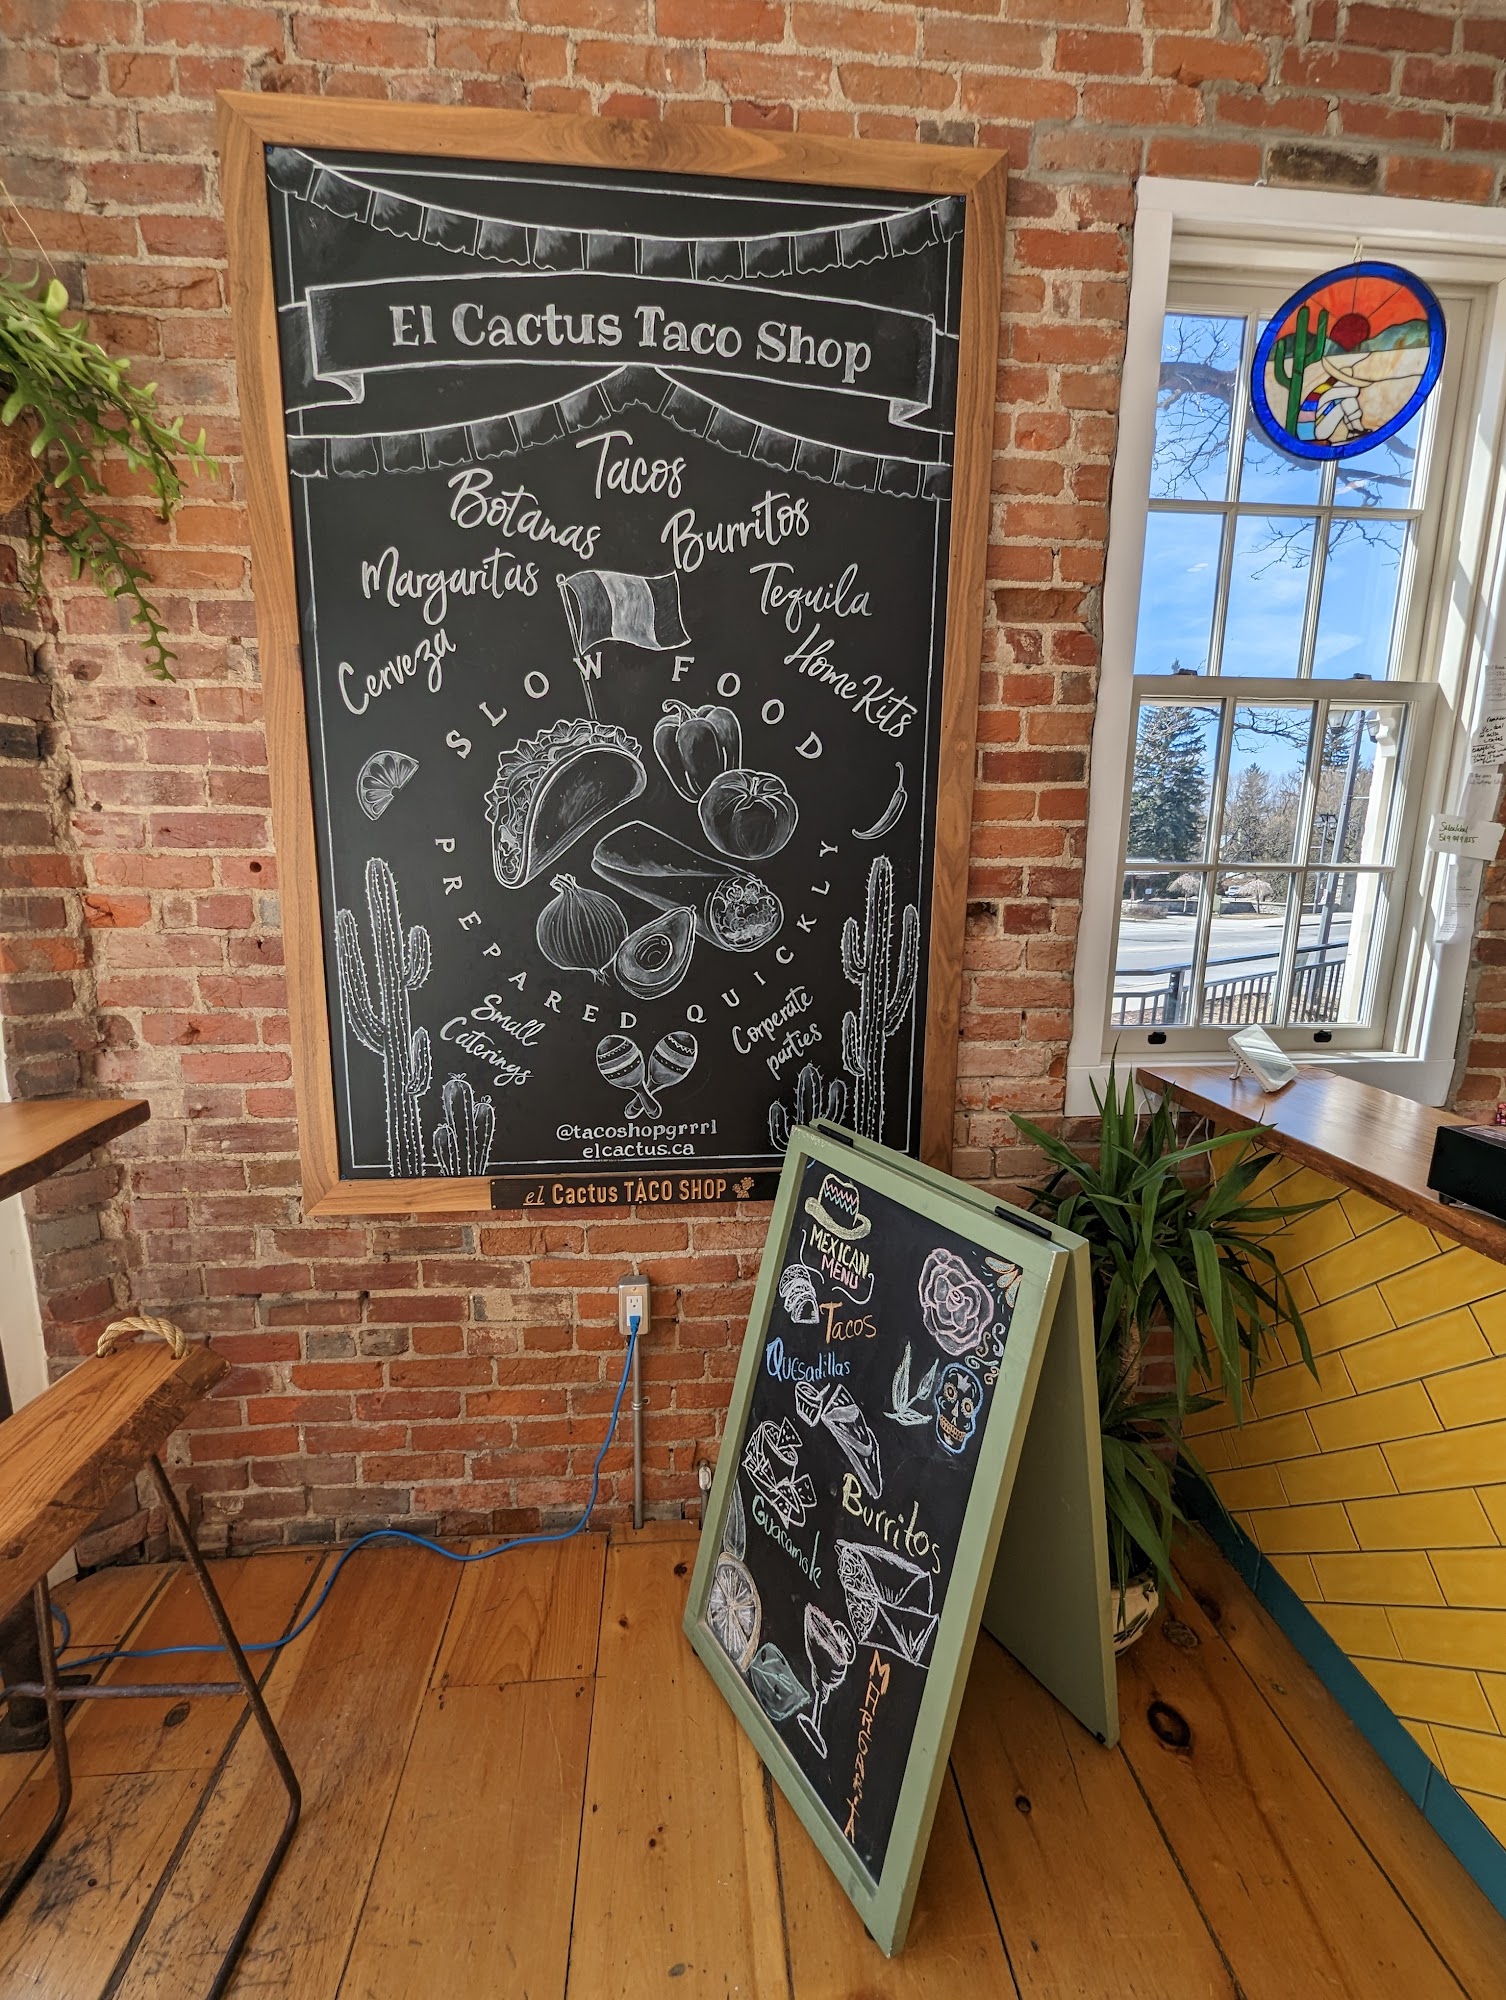 El Cactus Taco Shop
Tacos
Botanas
Burritos
Margaritas
Tequila
Cerveza
Home Kits
SLOW FOOD
PREPARED QUICKLY
Small
Caterings
Corperate
parties
@tacoshopgrrrl
elcactus.ca
el Cactus TACO SHOP
MEXICAN
MENU
Tacos
Quesadillas
Burritos
Guacamole
MARGARITA